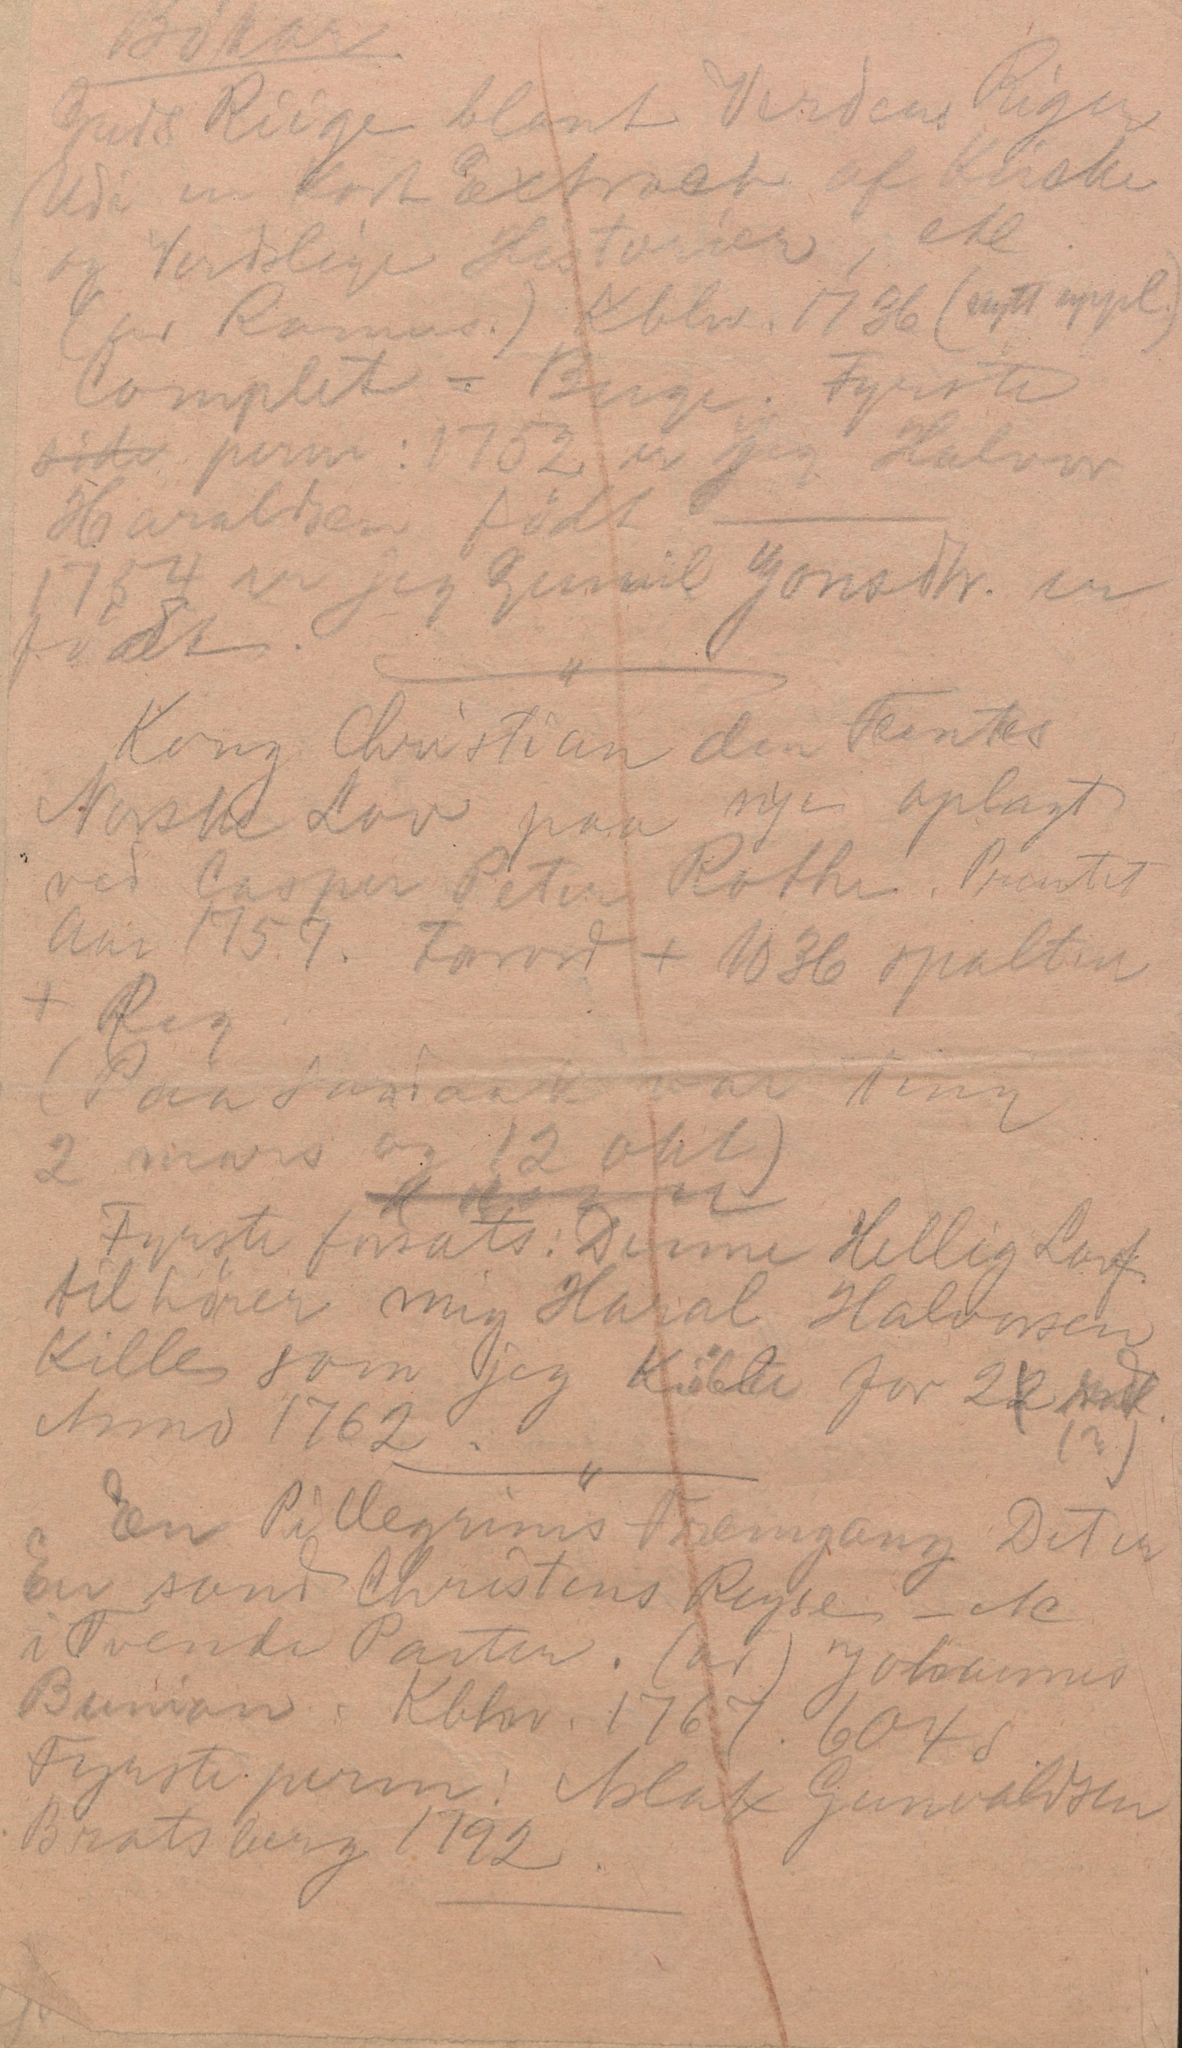 Bökar
Guds Riige blant Verdens Riger
Udi en Kort Extract af Kirke
og Verdslige Historier, etc.
(av Ramus.) Kbhv. 1736 (nytt uppl.)
Complet - Berge. Fyrste
side perm: 1752 er jeg Halvor
Haraldsen födt
1754 er jeg Gunnil Jonsdtr. er
födt.
"
Kong Christian den Femtes
Norske Lov paa nye oplagt
ved Casper Peter Rothe. Prentet
Aar 1757. Forord + 1036 spalter
+ Reg
(Paa var ting
2 mars og 12 okt)
Fyrste forsats: Denne Hellig Lovf
tilhörer mig Haral Halvorsen
Kille som jeg Kiöbte for
Anno 1762.
"
En Pillegrims Fremgang Det er
En sand Christens Reyse - etc
i Tvende Parter. (av) Johannes
Bunian. Kbhv. 1767. 604 s
Fyrste perm: Aslak Gunvaldsen
Bratsberg 1792.